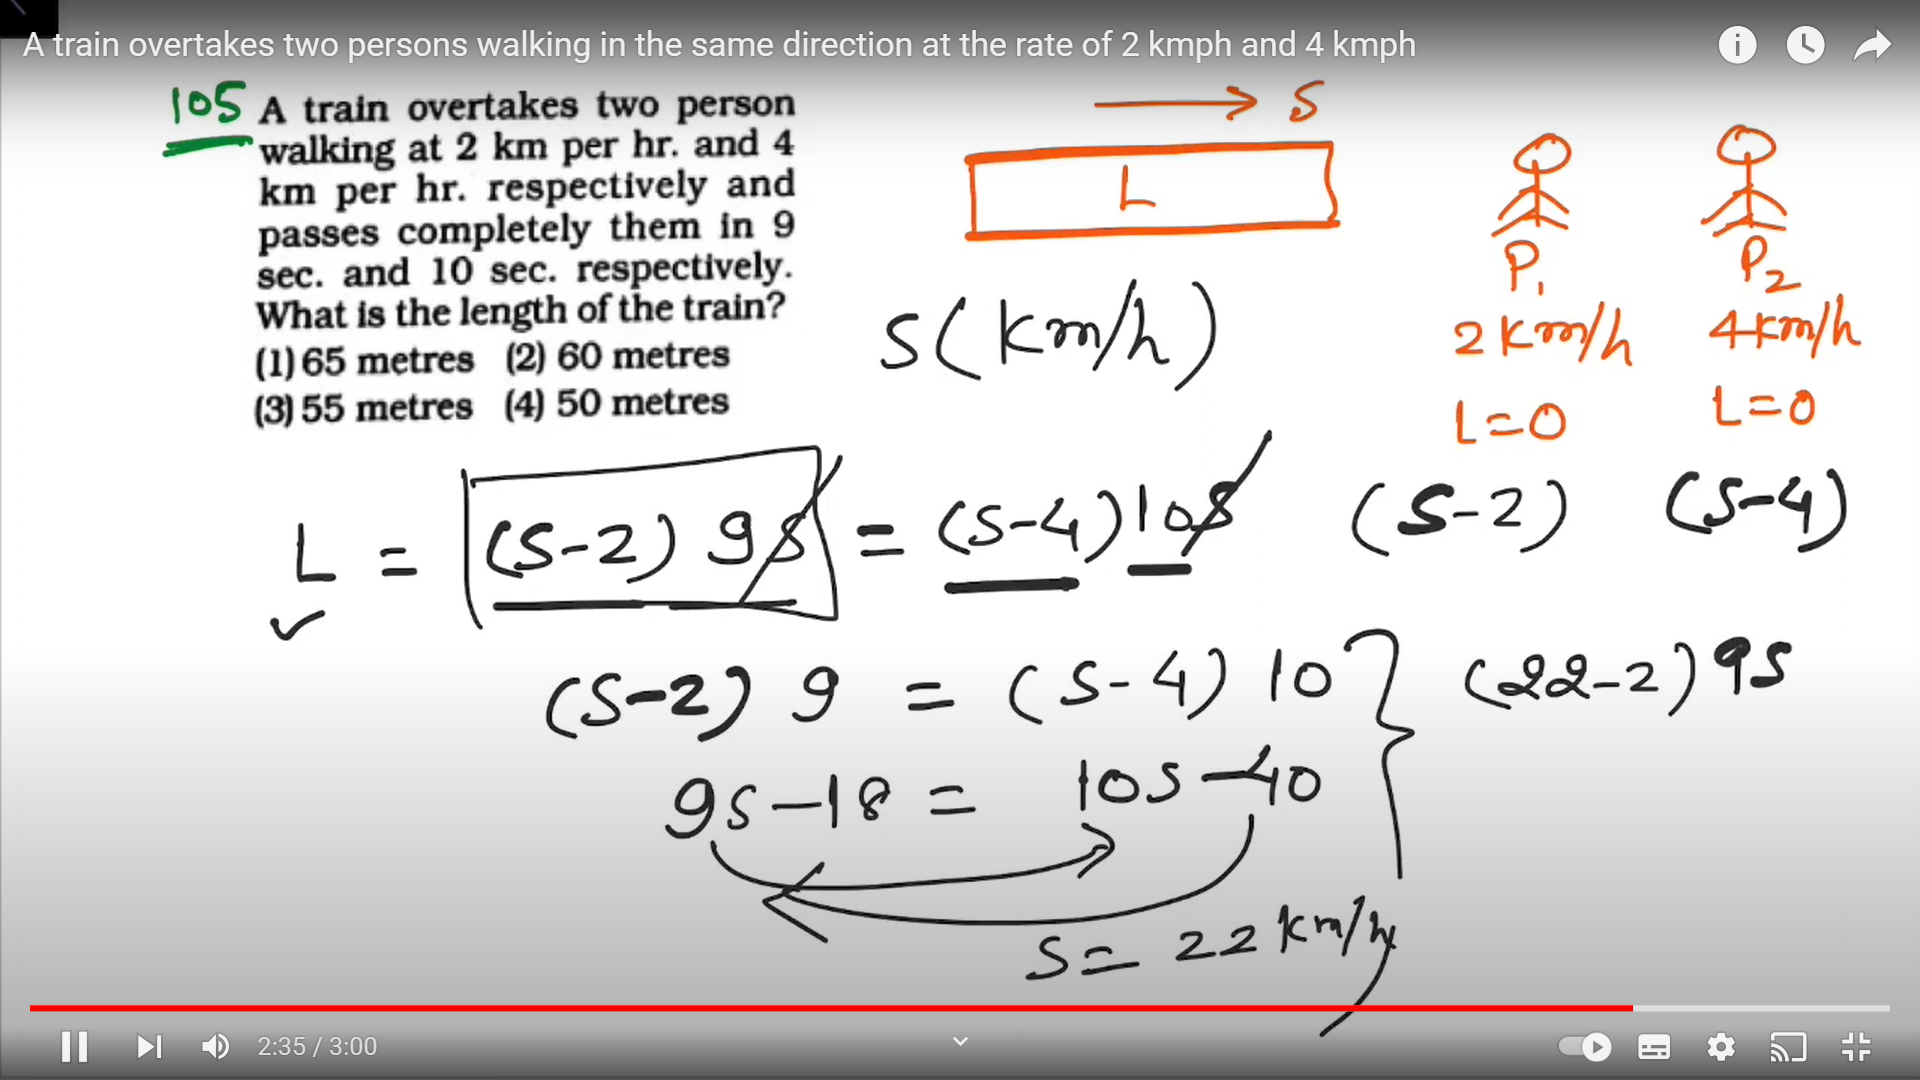 A train overtakes two persons walking in the same direction at the rate of 2 kmph and 4 kmph
105 A train overtakes two person
walking at 2 km per hr. and 4
km per hr. respectively and
passes completely them in 9
sec. and 10 sec. respectively.
What is the length of the train?
(1) 65 metres (2) 60 metres
(3) 55 metres (4) 50 metres
S
L
P1 P2
S(km/h)
2 km/h 4km/h
L=0 L=0
L = (S-2) 9s = (S-4) 10s (S-2) (S-4)
(S-2) 9 = (S-4) 10 (22-2) 9s
9s-18 = 10s-40
S = 22 km/h
2:35 / 3:00